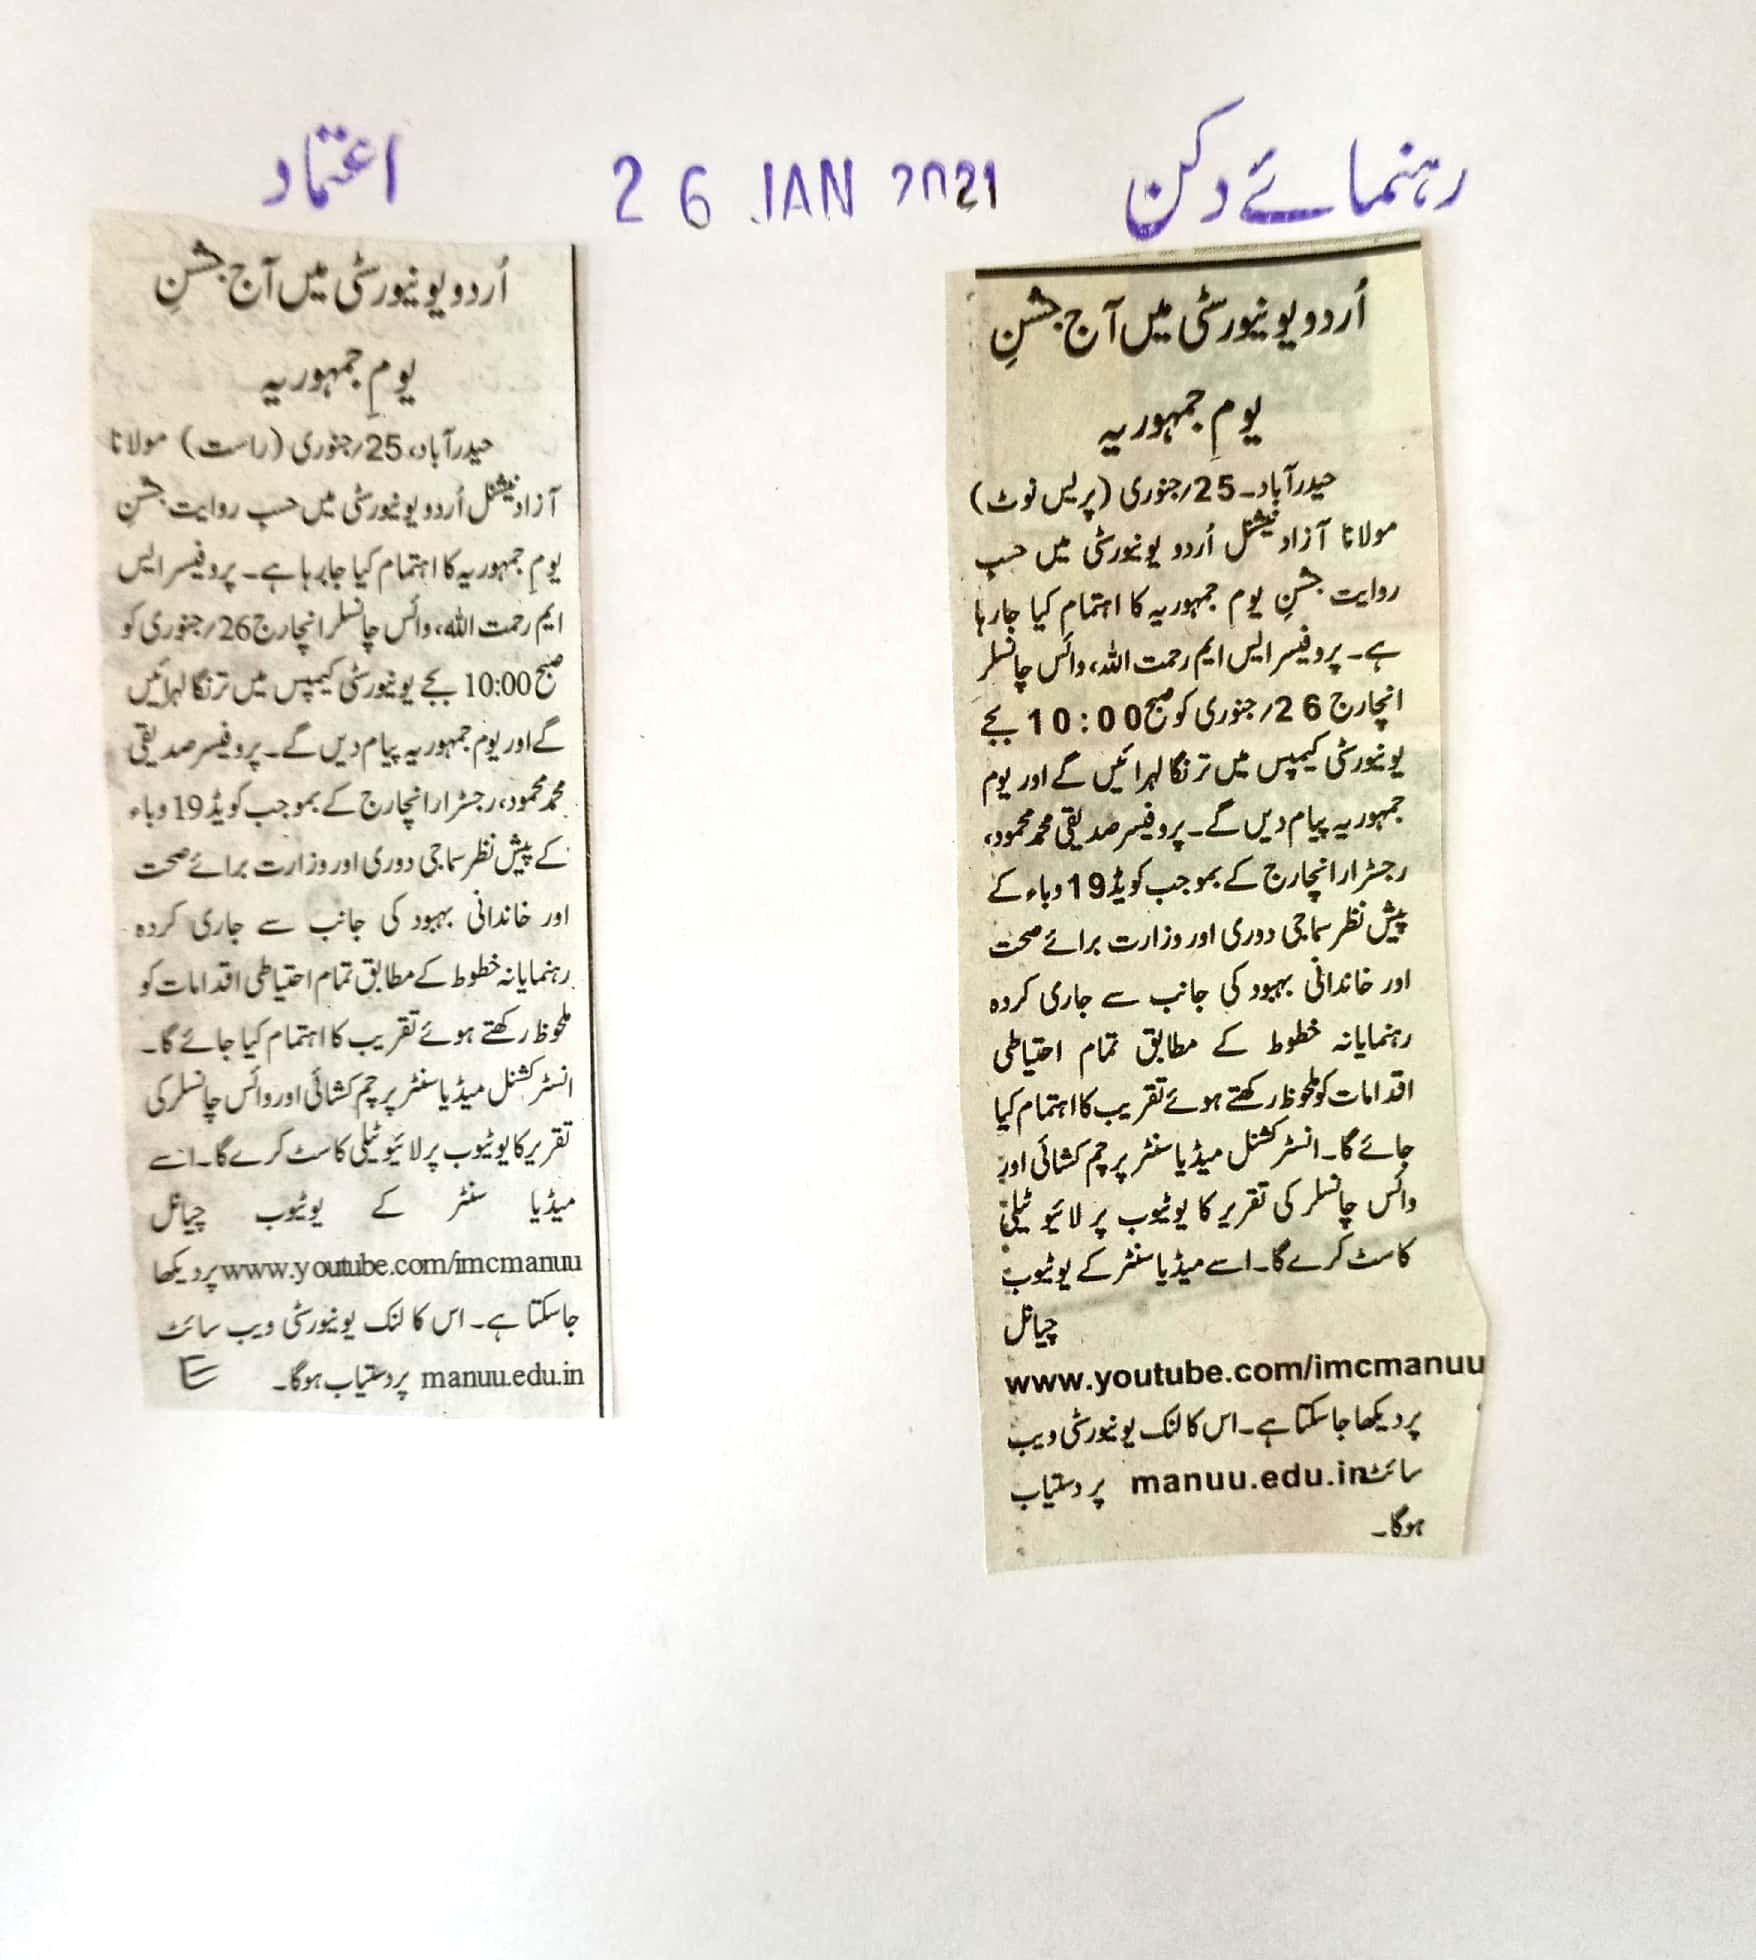 رہنمائے دکن
26 JAN 2021
اعتماد
اُردو یونیورسٹی میں آج جشنِ
یومِ جمہوریہ
حیدرآباد۔25؍جنوری (پریس نوٹ)
مولانا آزاد نیشنل اُردو یونیورسٹی میں حسبِ
روایت جشنِ یوم جمہوریہ کا اہتمام کیا جارہا
ہے۔ پروفیسر ایس ایم رحمت اللہ، وائس چانسلر
انچارج 26؍جنوری کو صبح 10:00 بجے
یونیورسٹی کیمپس میں ترنگا لہرائیں گے اور یوم
جمہوریہ پیام دیں گے۔ پروفیسر صدیقی محمد محمود،
رجسٹرار انچارج کے بموجب کویڈ 19 وباء کے
پیش نظر سماجی دوری اور وزارت برائے صحت
اور خاندانی بہبود کی جانب سے جاری کردہ
رہنمایانہ خطوط کے مطابق تمام احتیاطی
اقدامات کو ملحوظ رکھتے ہوئے تقریب کا اہتمام کیا
جائے گا۔ انسٹرکشنل میڈیا سنٹر پرچم کشائی اور
وائس چانسلر کی تقریر کا یوٹیوب پر لائیو ٹیلی
کاسٹ کرے گا۔ اسے میڈیا سنٹر کے یوٹیوب
چیانل
www.youtube.com/imcmanuu
پر دیکھا جاسکتا ہے۔ اس کا لنک یونیورسٹی ویب
سائٹ manuu.edu.in پر دستیاب
ہوگا۔
اُردو یونیورسٹی میں آج جشنِ
یومِ جمہوریہ
حیدرآباد، 25؍جنوری (راست) مولانا
آزاد نیشنل اُردو یونیورسٹی میں حسبِ روایت جشنِ
یومِ جمہوریہ کا اہتمام کیا جارہا ہے۔ پروفیسر ایس
ایم رحمت اللہ، وائس چانسلر انچارج 26؍جنوری کو
صبح 10:00 بجے یونیورسٹی کیمپس میں ترنگا لہرائیں
گے اور یوم جمہوریہ پیام دیں گے۔ پروفیسر صدیقی
محمد محمود، رجسٹرار انچارج کے بموجب کویڈ 19 وباء
کے پیش نظر سماجی دوری اور وزارت برائے صحت
اور خاندانی بہبود کی جانب سے جاری کردہ
رہنمایانہ خطوط کے مطابق تمام احتیاطی اقدامات کو
ملحوظ رکھتے ہوئے تقریب کا اہتمام کیا جائے گا۔
انسٹرکشنل میڈیا سنٹر پرچم کشائی اور وائس چانسلر کی
تقریر کا یوٹیوب پر لائیو ٹیلی کاسٹ کرے گا۔ اسے
میڈیا سنٹر کے یوٹیوب چیانل
www.youtube.com/imcmanuu پر دیکھا
جاسکتا ہے۔ اس کا لنک یونیورسٹی ویب سائٹ
manuu.edu.in پر دستیاب ہوگا۔